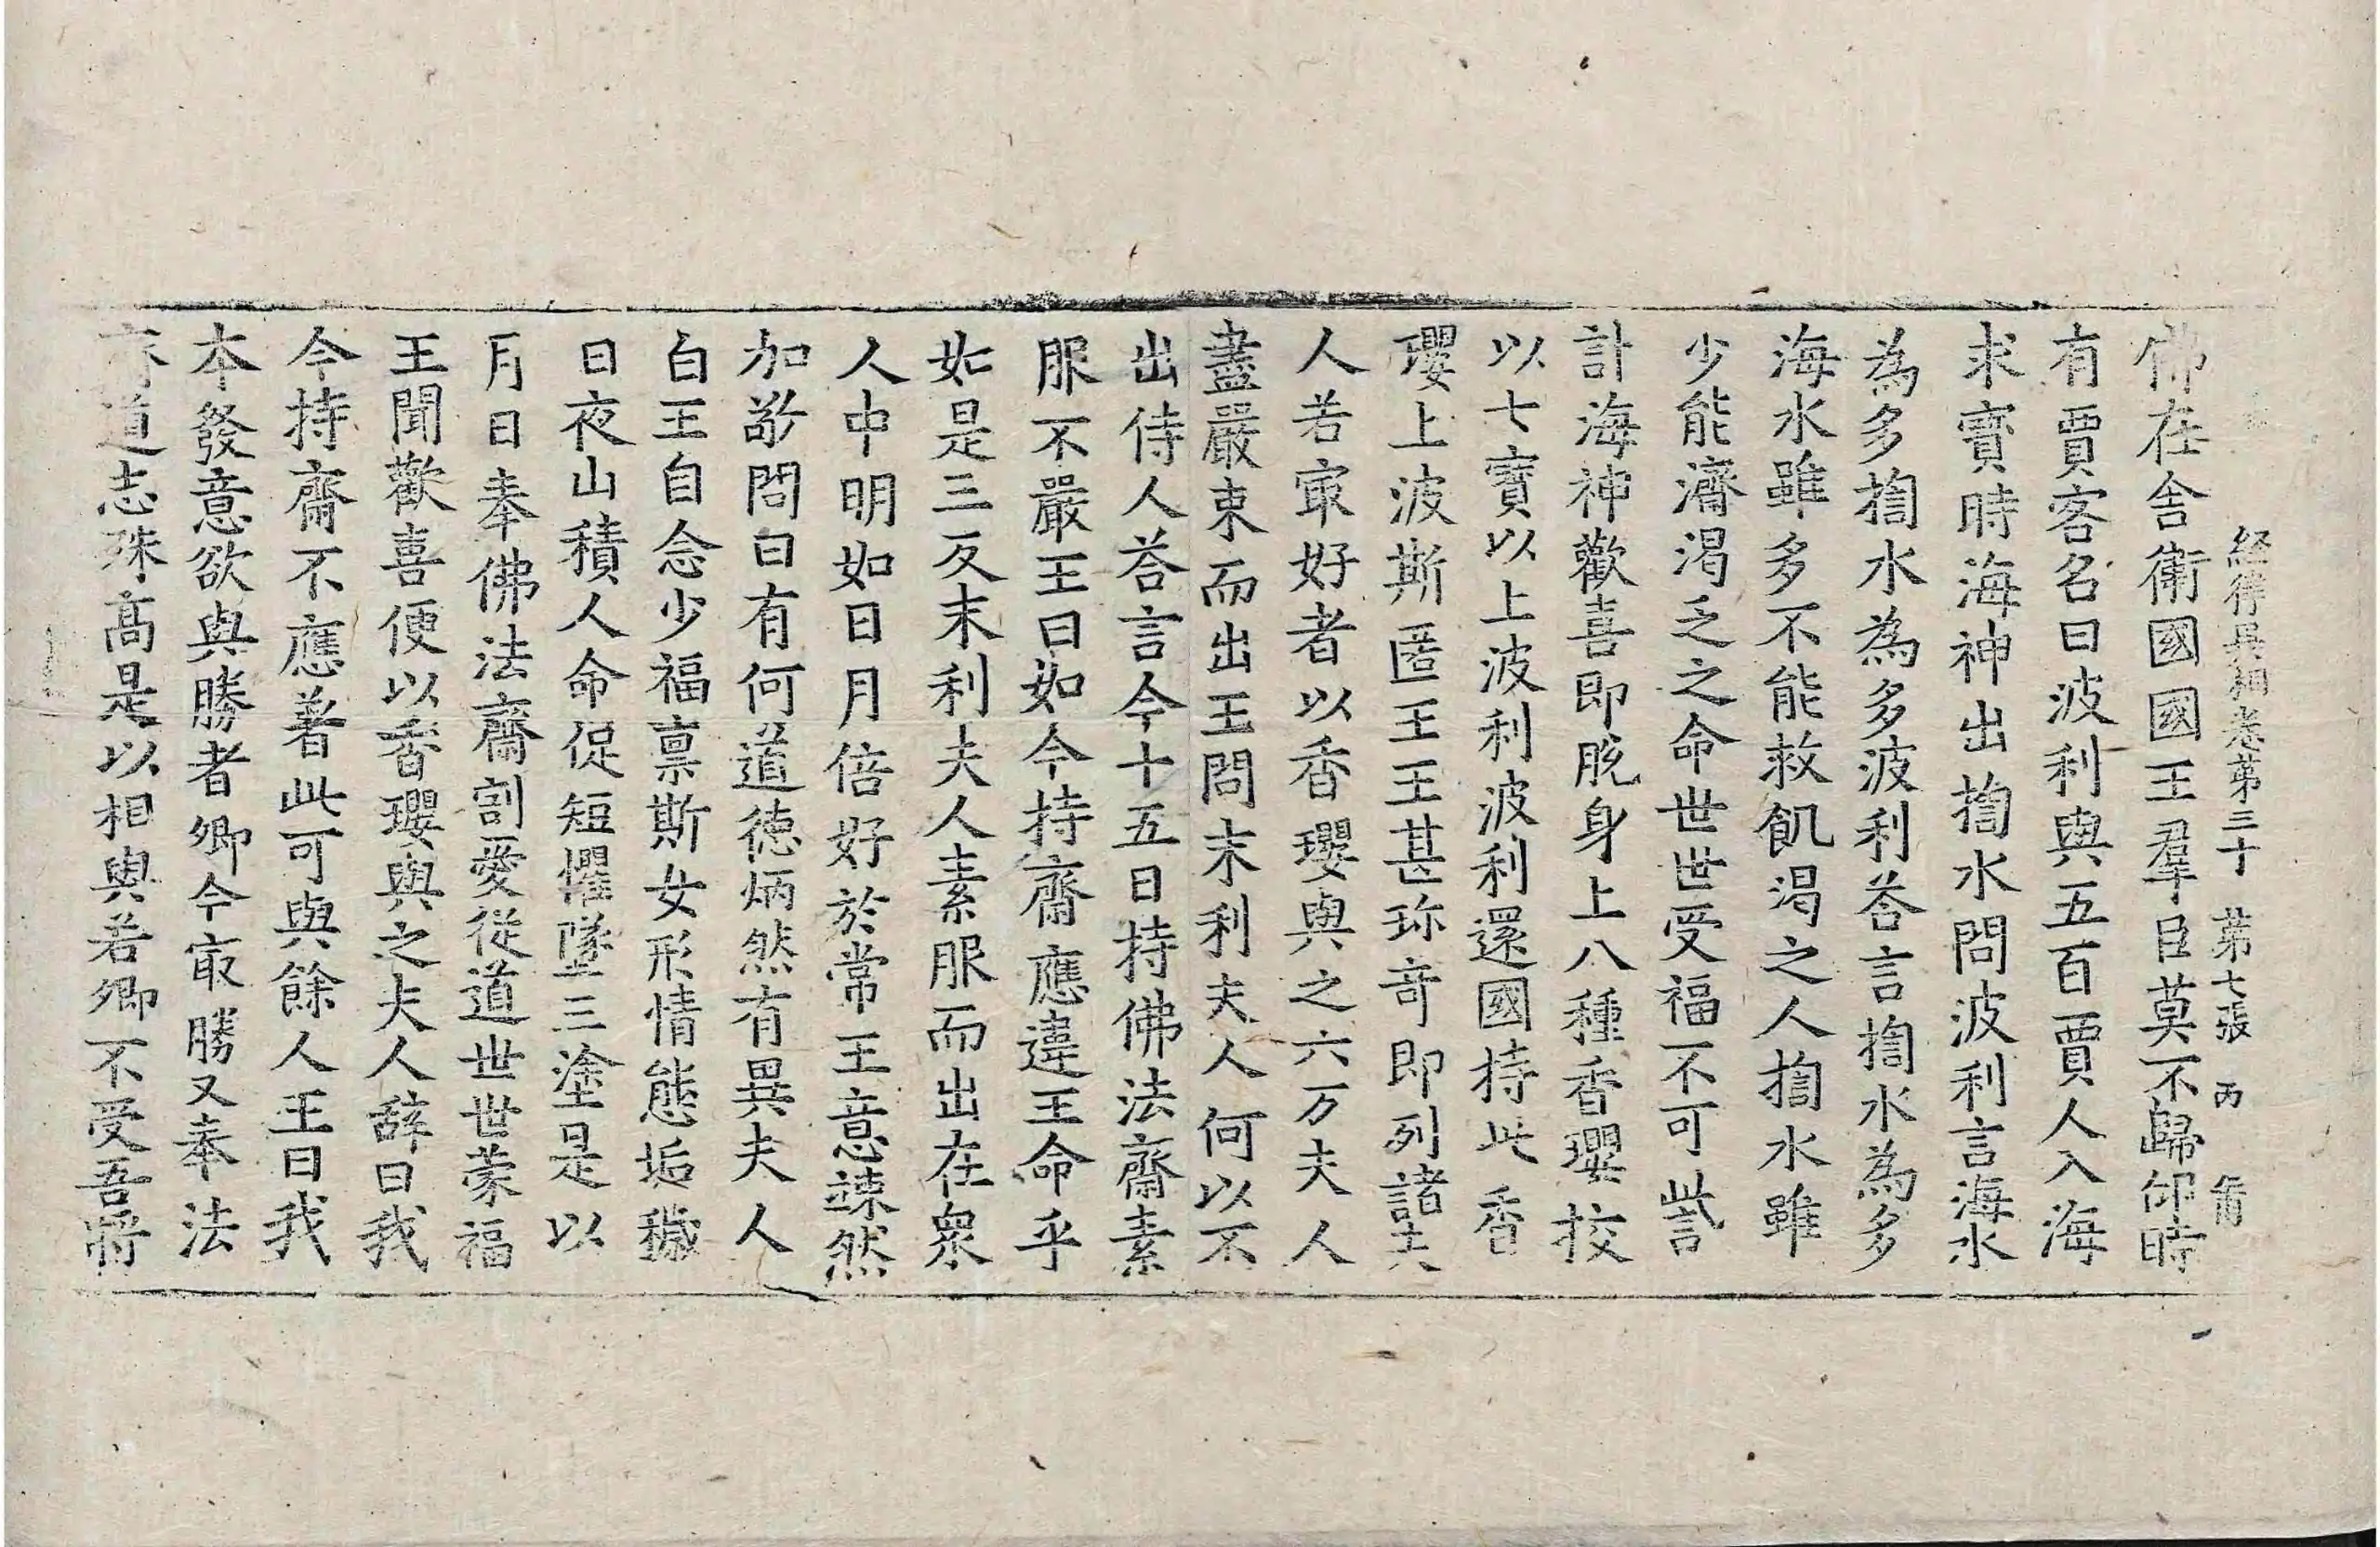 経律異相卷第三十 第七張 丙
佛在舎衛國國王羣臣莫不歸仰時
有賈客名曰波利與五百賈人入海
求寳時海神出掬水問波利言海水
為多掬水為多波利荅言掬水為多
海水雖多不能救飢渴之人掬水雖
少能濟渴乏之命世世受福不可訾
計海神歡喜即脫身上八種香瓔挍
以七寳以上波利波利還國持此香
瓔上波斯匿王王甚珎奇即列諸夫
人若㝡好者以香瓔與之六万夫人
盡嚴束而出王問末利夫人何以不
出侍人荅言今十五日持佛法齋素
服不嚴王曰如今持齋應違王命乎
如是三反末利夫人素服而出在衆
人中明如日月倍好於常王意竦然
加敬問曰有何道徳炳然有異夫人
白王自念少福禀斯女形情態垢穢
日夜山積人命促短懼墜三塗是以
月日奉佛法齋割愛從道世世蒙福
王聞歡喜便以香瓔與之夫人辞曰我
今持齋不應著此可與餘人王曰我
本發意欲與勝者卿今㝡勝又奉法
齋道志殊髙是以相與若卿不受吾將